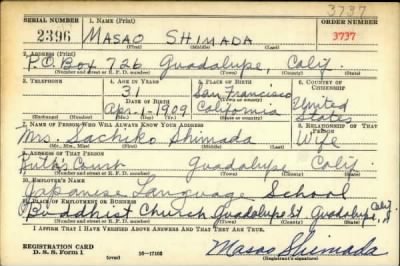 3737
SERIAL NUMBER 1. NAME (Print) ORDER NUMBER
2396 MASAO SHIMADA 3737
(First) (Middle) (Last)
2. ADDRESS (Print)
P.O. Box 726 Guadalupe, Calif.
(Number and street or R. F. D. number) (Town) (County) (State)
3. TELEPHONE 4. AGE IN YEARS 5. PLACE OF BIRTH 6. COUNTRY OF CITIZENSHIP
31 San Francisco
DATE OF BIRTH (Town or county) United
Apr. 1 1909 California States
(Exchange) (No.) (Mo.) (Day) (Yr.) (State or country)
7. NAME OF PERSON WHO WILL ALWAYS KNOW YOUR ADDRESS 8. RELATIONSHIP OF THAT PERSON
Mrs. Sachiko Shimada Wife
(Mr., Mrs., Miss) (First) (Middle) (Last)
9. ADDRESS OF THAT PERSON
Court Guadalupe Calif
(Number and street or R. F. D. number) (Town) (County) (State)
10. EMPLOYER'S NAME
Japanese Language School
11. PLACE OF EMPLOYMENT OR BUSINESS
Buddhist Church Guadalupe St. Guadalupe, Calif.
(Number and street or R. F. D. number) (Town) (County) (State)
I AFFIRM THAT I HAVE VERIFIED ABOVE ANSWERS AND THAT THEY ARE TRUE.
REGISTRATION CARD
D. S. S. Form 1 (over) 16—17105 Masao Shimada
(Registrant's signature)